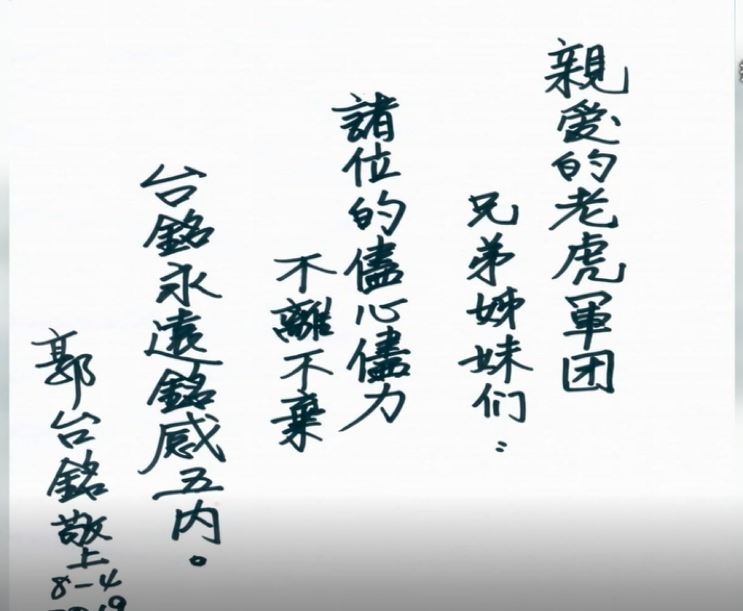 親愛的老虎軍团
兄弟姊妹们：
諸位的儘心儘力
不離不棄
台銘永遠銘感五内。
郭台銘敬上
8-4